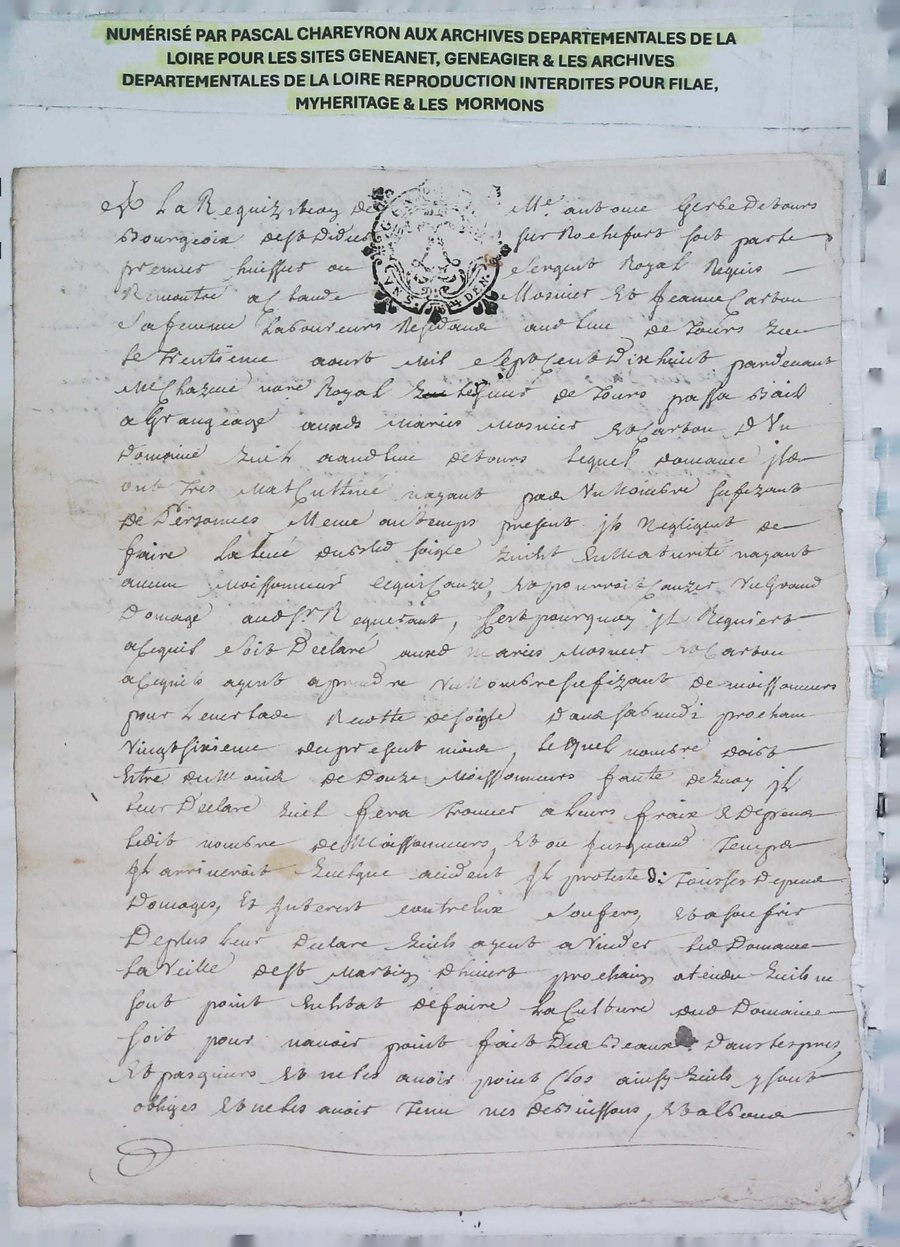 NUMÉRISÉ PAR PASCAL CHAREYRON AUX ARCHIVES DEPARTEMENTALES DE LA
LOIRE POUR LES SITES GENEANET, GENEAGIER & LES ARCHIVES
DEPARTEMENTALES DE LA LOIRE REPRODUCTION INTERDITES POUR FILAE,
MYHERITAGE & LES MORMONS
La Requizition de Me antoine Gerbe Detours
Bourgeoix de st Didier sur Rochefort soit parle
premier huissier ou sergent Royal Requis
Remontré a Claude Mosnier Et Jeanne Carton
Safemme Laboureurs Residans aud lieu de Tours que
Le Trentieme aoust Mil sept Cent Dix huict pardevant
Me Chazue nore Royal de Tours passa Bail
a Grangeage ausds Mariés Mosnier Et Carton D Un
Domaine quil a audlieu detours Lequel Domaine jls
ont Tres Mal Cultivé nayant pas Un Nombre sufizant
de Personnes Meme autemps present jls Negligent de
faire La Levé dubled soigle quiest En Maturité nayant
aucun Moissonneur Cequi Cauze, Et pourroit Cauzer Un Grand
Domage aud Sr Requerant, Cest pourquoy jl Requiert
a Cequil soit Declaré ausd Mariés Mosnier Et Carton
a Cequils ayent a prendre Un Nombre sufizant de moissonneurs
pour Lever Lade Recolte de soigle Dans sabmdi prochain
Vingt sixieme du present mois, Le quel nombre doibt
Estre du Moins de Douze Moissonneurs faute dequoy jl
Leur Declare quil fera trouver a Leurs fraix & depens
Ledit nombre de Moissonneurs, Et ou jusquaud Temps
jl arriveroit quelque accident jl proteste de Tousses Depens
Domages, Et Interest contre Eux soufers, Et a soufrir
De plus Leur declare quils ayent a Vuider Led Domaine
La Veille de st Martin Dhivert prochain atendu quils ne
sont point En Estat de faire La Culture dud Domaine
soit pour navoir point fait Des Beaux Dans les prés,
Et pasquiers Et ne les avoir point Clos ainsy quils y sont
obliges Et ne les avoir Tenu nes de Buissons,